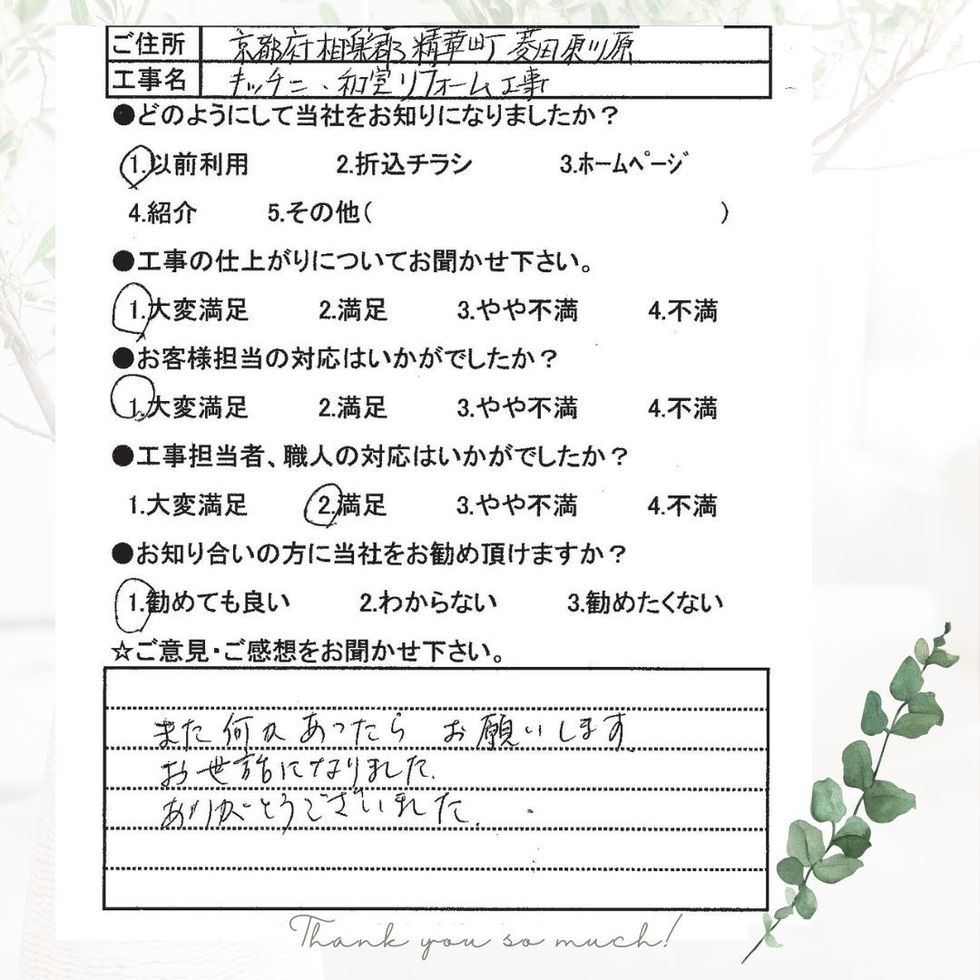 ご住所 京都府相楽郡精華町菱田東川原
工事名 キッチン、和室リフォーム工事
●どのようにして当社をお知りになりましたか？
1.以前利用 2.折込チラシ 3.ﾎｰﾑﾍﾟｰｼﾞ
4.紹介 5.その他( )
●工事の仕上がりについてお聞かせ下さい。
1.大変満足 2.満足 3.やや不満 4.不満
●お客様担当の対応はいかがでしたか？
1.大変満足 2.満足 3.やや不満 4.不満
●工事担当者、職人の対応はいかがでしたか？
1.大変満足 2.満足 3.やや不満 4.不満
●お知り合いの方に当社をお勧め頂けますか？
1.勧めても良い 2.わからない 3.勧めたくない
☆ご意見・ご感想をお聞かせ下さい。
また何かあったら お願いします
お世話になりました.
ありがとうございました.
Thank you so much!